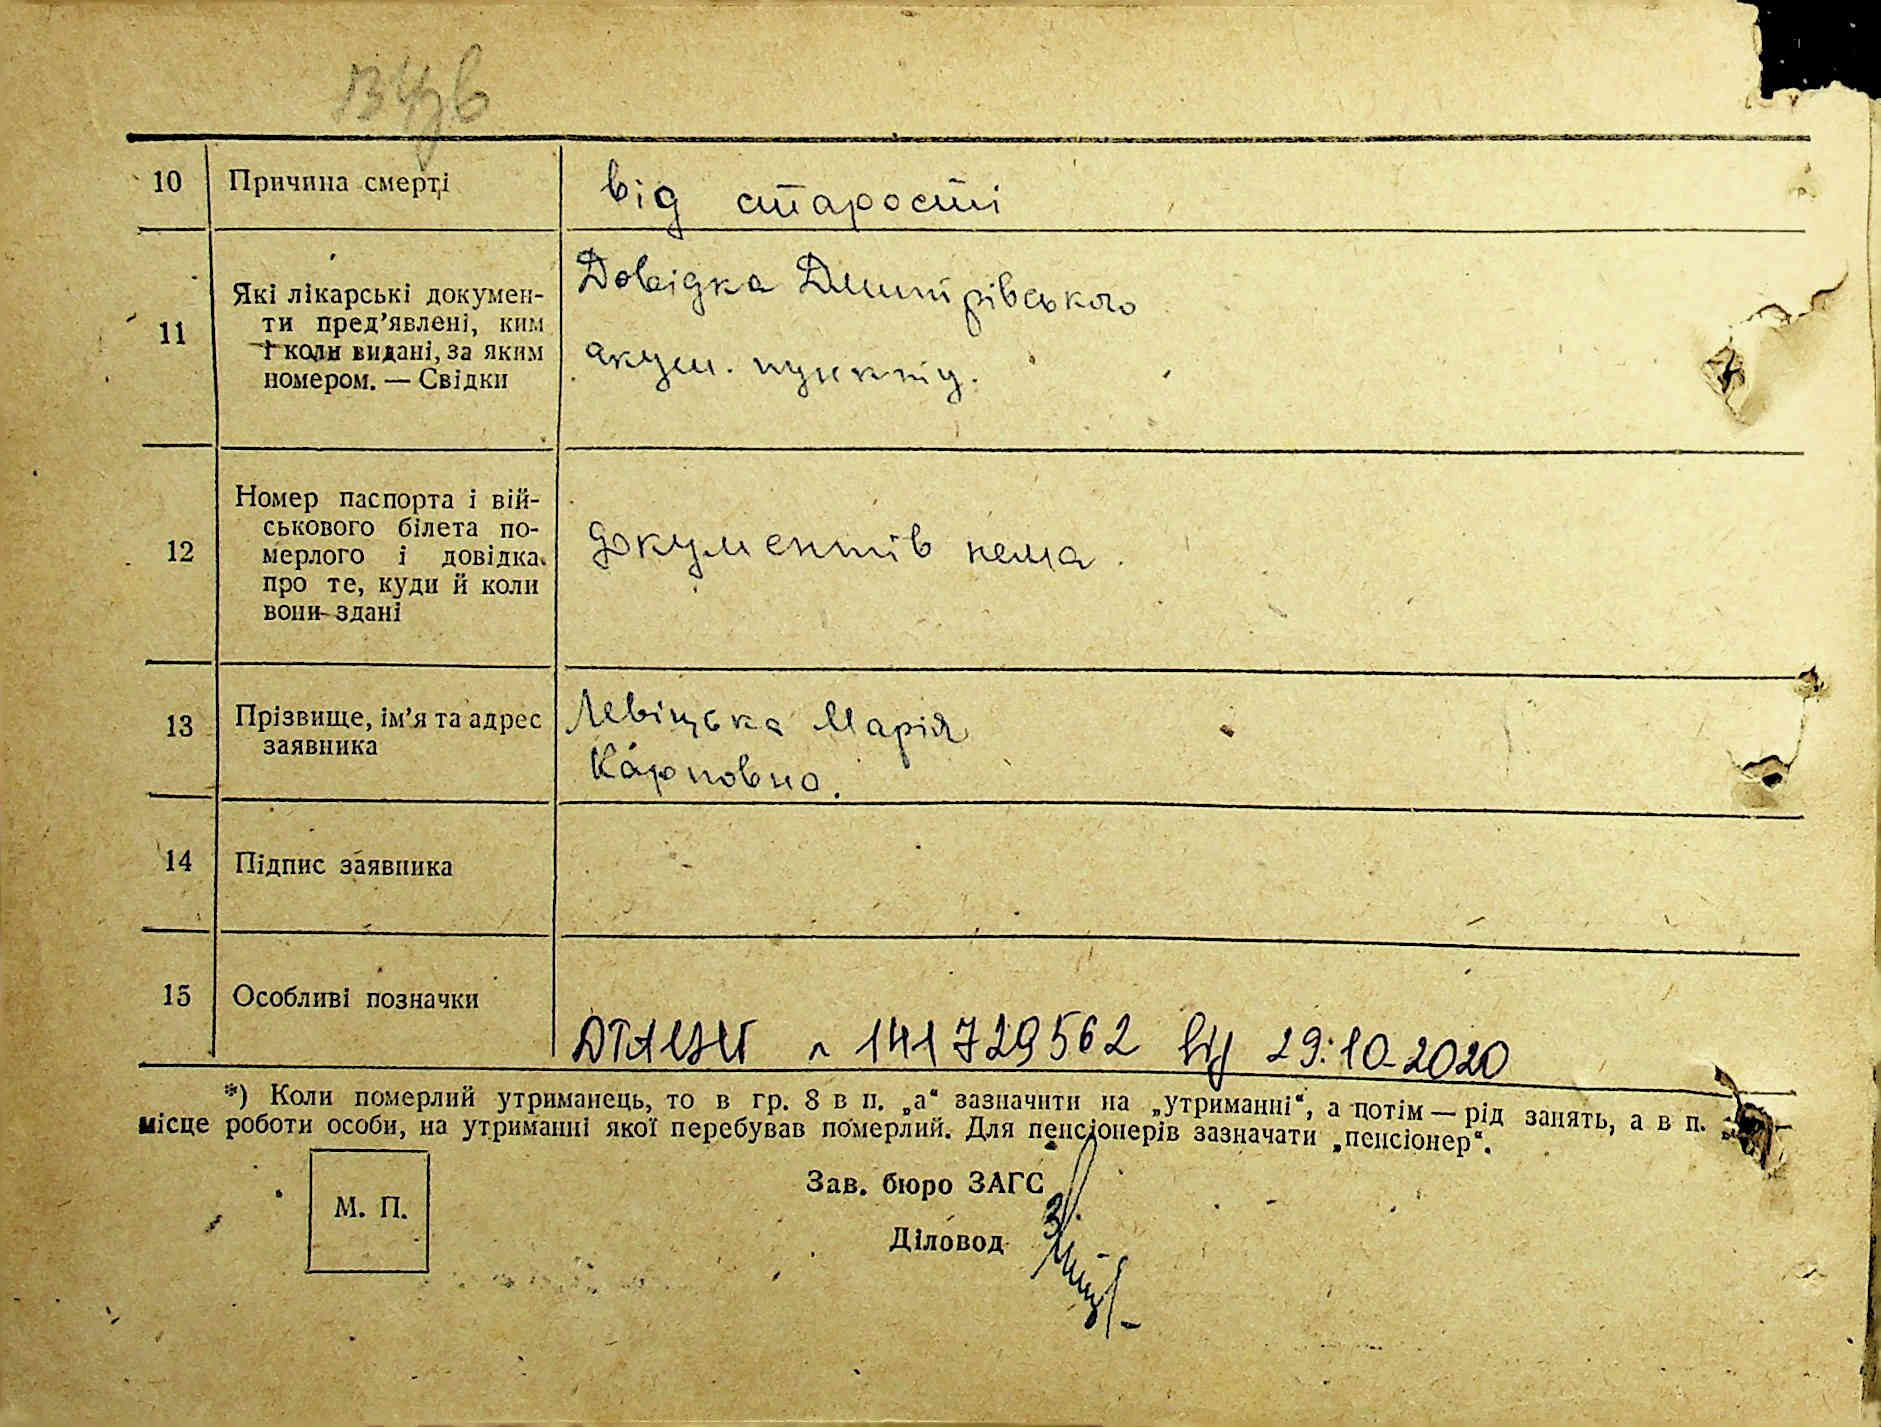 10 Причина смерті від старості
11 Які лікарські докумен-
ти пред’явлені, ким
і коли видані, за яким
номером. — Свідки
Довідка Дмитрівського
акуш. пункту.
12 Номер паспорта і вій-
ськового білета по-
мерлого і довідка
про те, куди й коли
вони здані
документів нема.
13 Прізвище, ім’я та адрес
заявника
Левіцька Марія
Карповна.
14 Підпис заявника
15 Особливі позначки
141729562 від 29.10.2020
*) Коли померлий утриманець, то в гр. 8 в п. „а“ зазначити на „утриманні“, а потім — рід занять, а в п.
місце роботи особи, на утриманні якої перебував померлий. Для пенсіонерів зазначати „пенсіонер“.
Зав. бюро ЗАГС
М. П.
Діловод